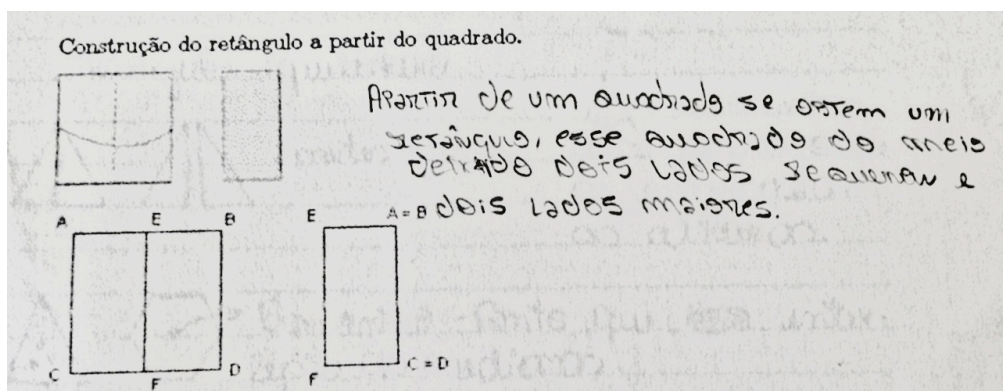 Construção do retângulo a partir do quadrado.
APartir de um quadrado se obtem um
retângulo, esse quadrado do meio
deixado dois lados Sequenan e
dois lados maiores.
A E B
E A = B
C F D
F C = D